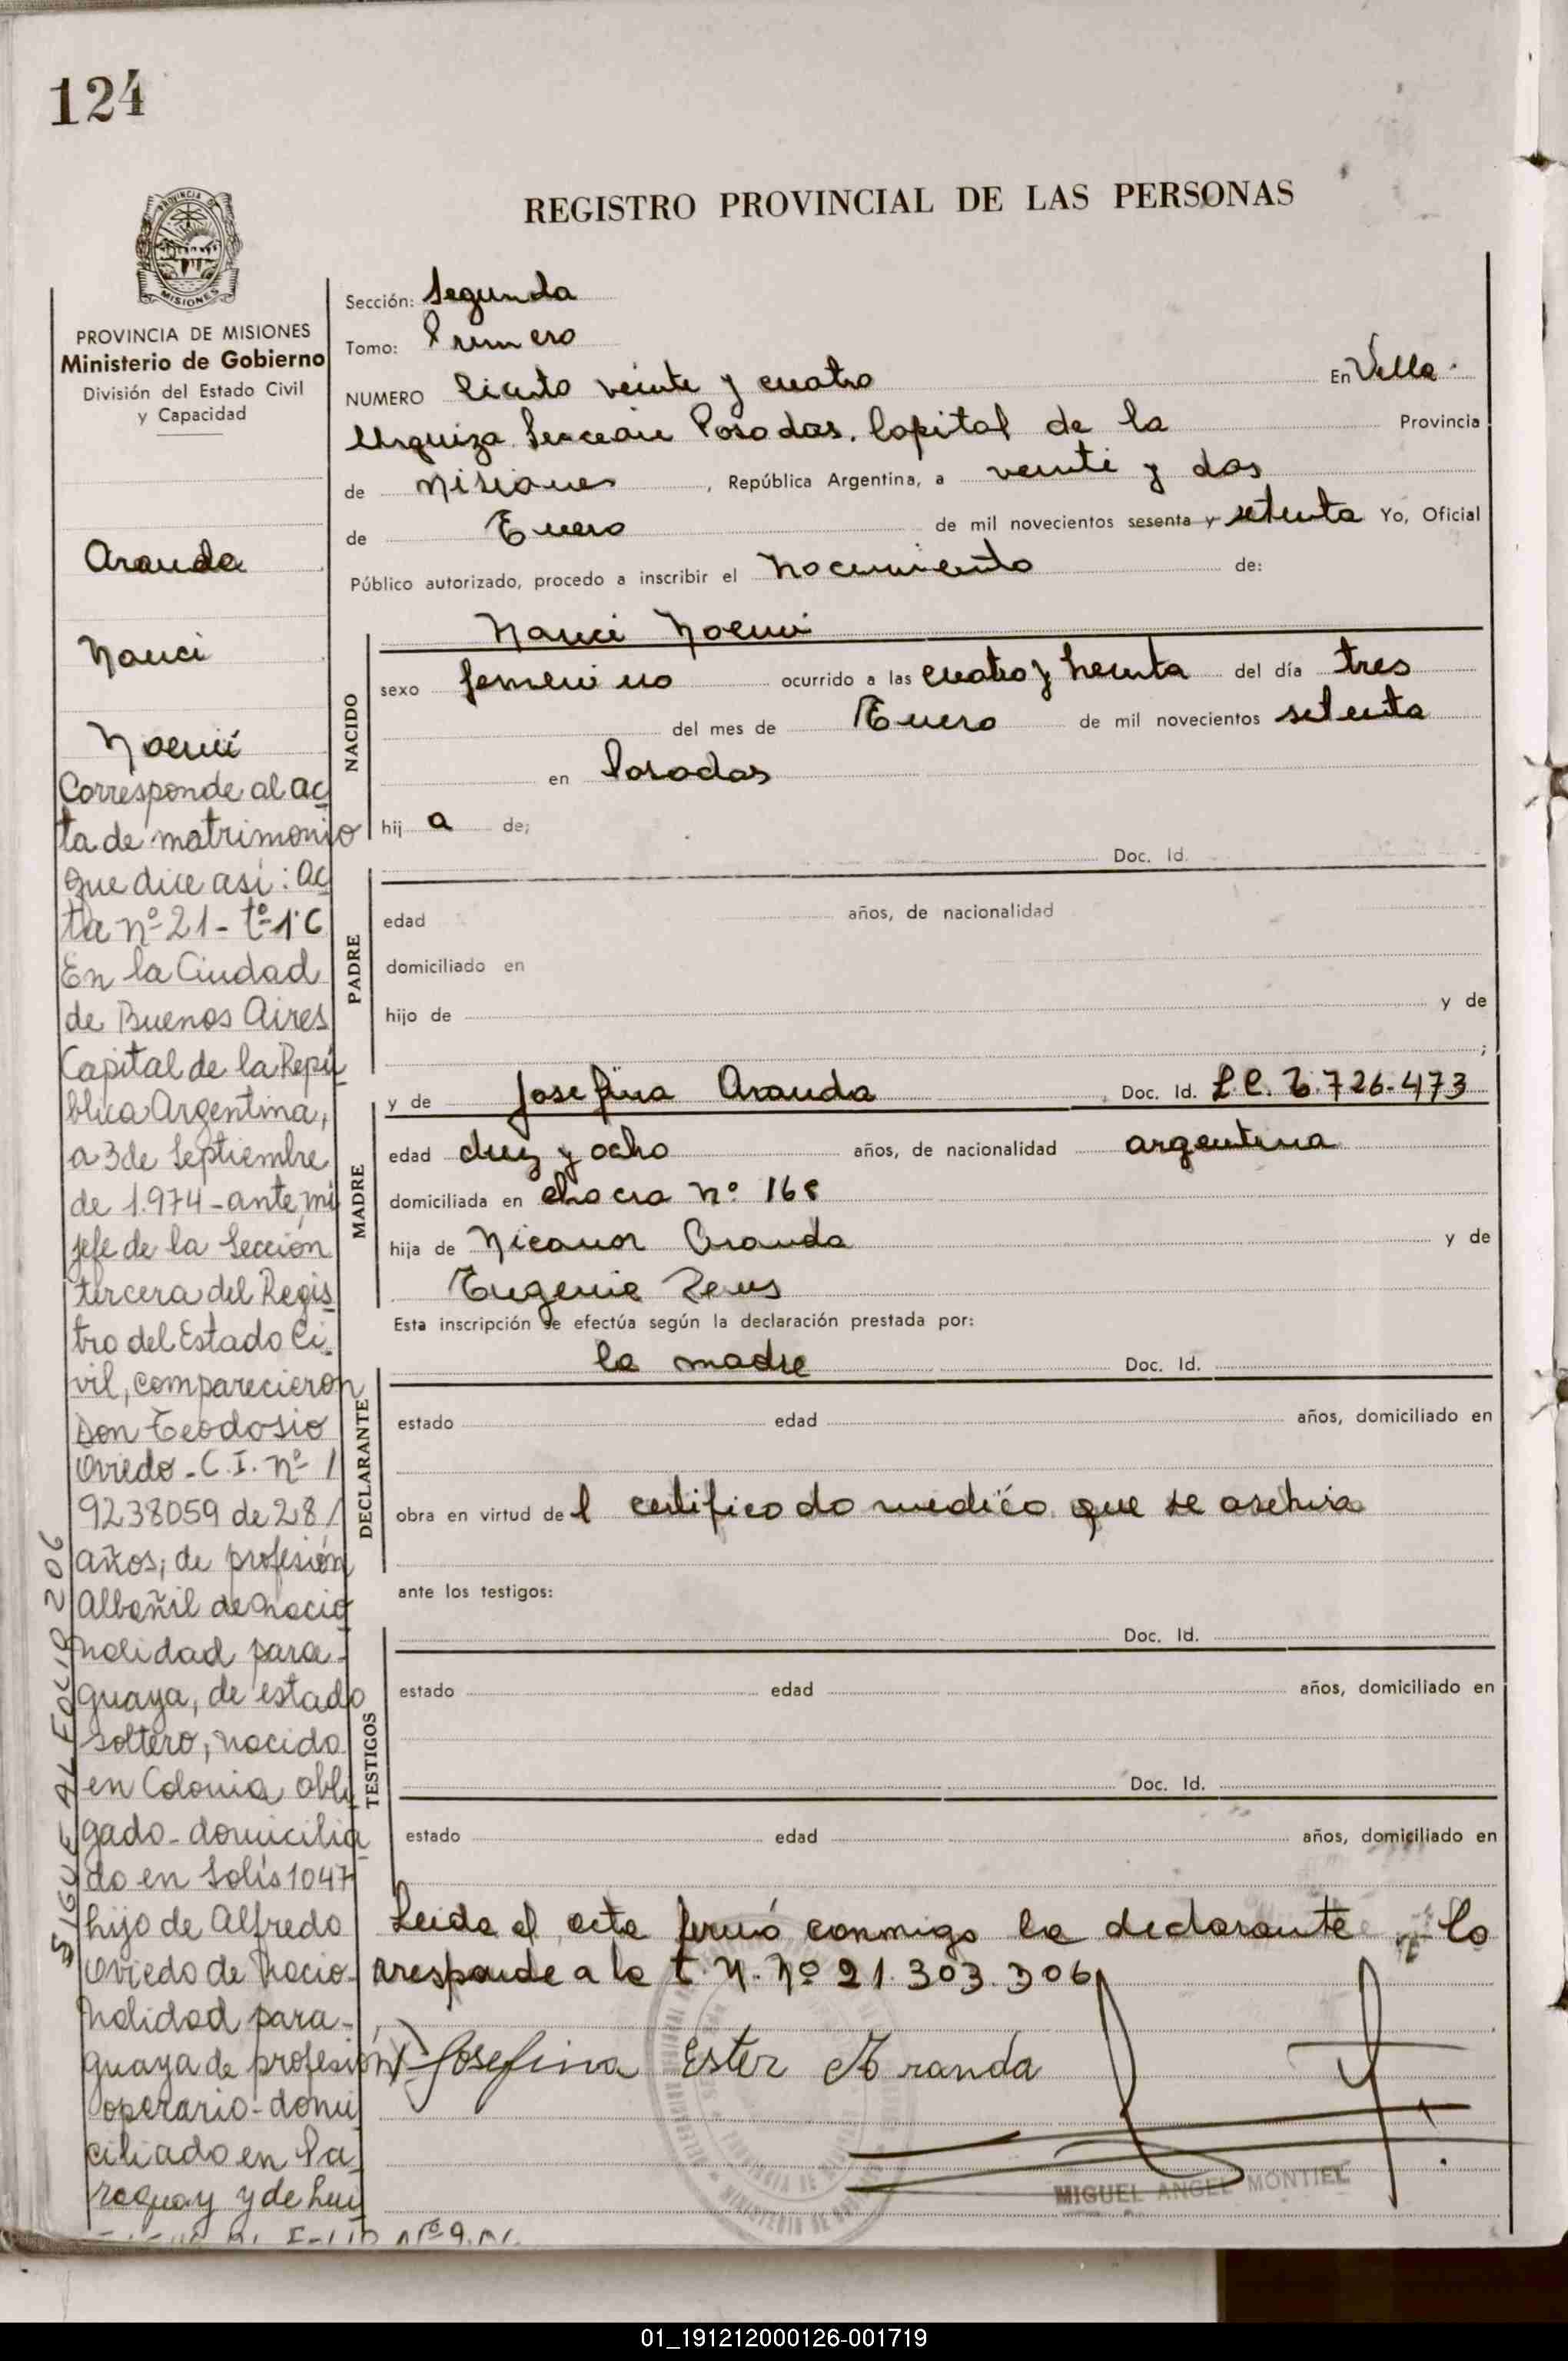 124
REGISTRO PROVINCIAL DE LAS PERSONAS
PROVINCIA DE
MISIONES
PROVINCIA DE MISIONES
Ministerio de Gobierno
División del Estado Civil
y Capacidad
Aranda
Nanci
Noemí
Corresponde al ac
ta de matrimonio
que dice así: Ac
ta nº 21 - tº 1º C
En la Ciudad
de Buenos Aires
Capital de la Repú
blica Argentina,
a 3 de Septiembre
de 1.974 - ante, mi
jefe de la Sección
tercera del Regis
tro del Estado Ci
vil, comparecieron
Don Teodosio
Oviedo - C.I. nº /
9238059 de 28 /
años; de profesión
Albañil de nacio
nalidad para-
guaya, de estado
soltero, nacido
en Colonia Obli
gado - domicilia
do en Solis 1047
hijo de Alfredo
Oviedo de nacio-
nalidad para-
guaya de profesión
operario - domi
ciliado en Pa
raguay y de
SIGUE AL FOLIO 206
Sección: Segunda
Tomo: Primero
NUMERO Ciento veinte y cuatro En Villa
Urquiza Posadas, Capital de la Provincia
de Misiones, República Argentina, a veinte y dos
de Enero de mil novecientos sesenta y setenta Yo, Oficial
Público autorizado, procedo a inscribir el nacimiento de:
Nanci Noemi
NACIDO
sexo femenino ocurrido a las cuatro y treinta del día tres
del mes de Enero de mil novecientos setenta
en Posadas
hij a de;
Doc. Id.
PADRE
edad años, de nacionalidad
domiciliado en
hijo de y de
;
y de Josefina Aranda Doc. Id. L.C. 6.726.473
MADRE
edad diez y ocho años, de nacionalidad argentina
domiciliada en chacra nº 168
hija de Nicanor Aranda y de
Eugenia
Esta inscripción se efectúa según la declaración prestada por:
la madre Doc. Id.
DECLARANTE
estado edad años, domiciliado en
obra en virtud del certificado medico que se archiva
ante los testigos:
Doc. Id.
TESTIGOS
estado edad años, domiciliado en
Doc. Id.
estado edad años, domiciliado en
Leida el acta firmó conmigo la declarante Co
rresponde a la t. N. Nº 21.303.306
Josefina Ester Aranda
MIGUEL ANGEL MONTIEL
01_191212000126-001719